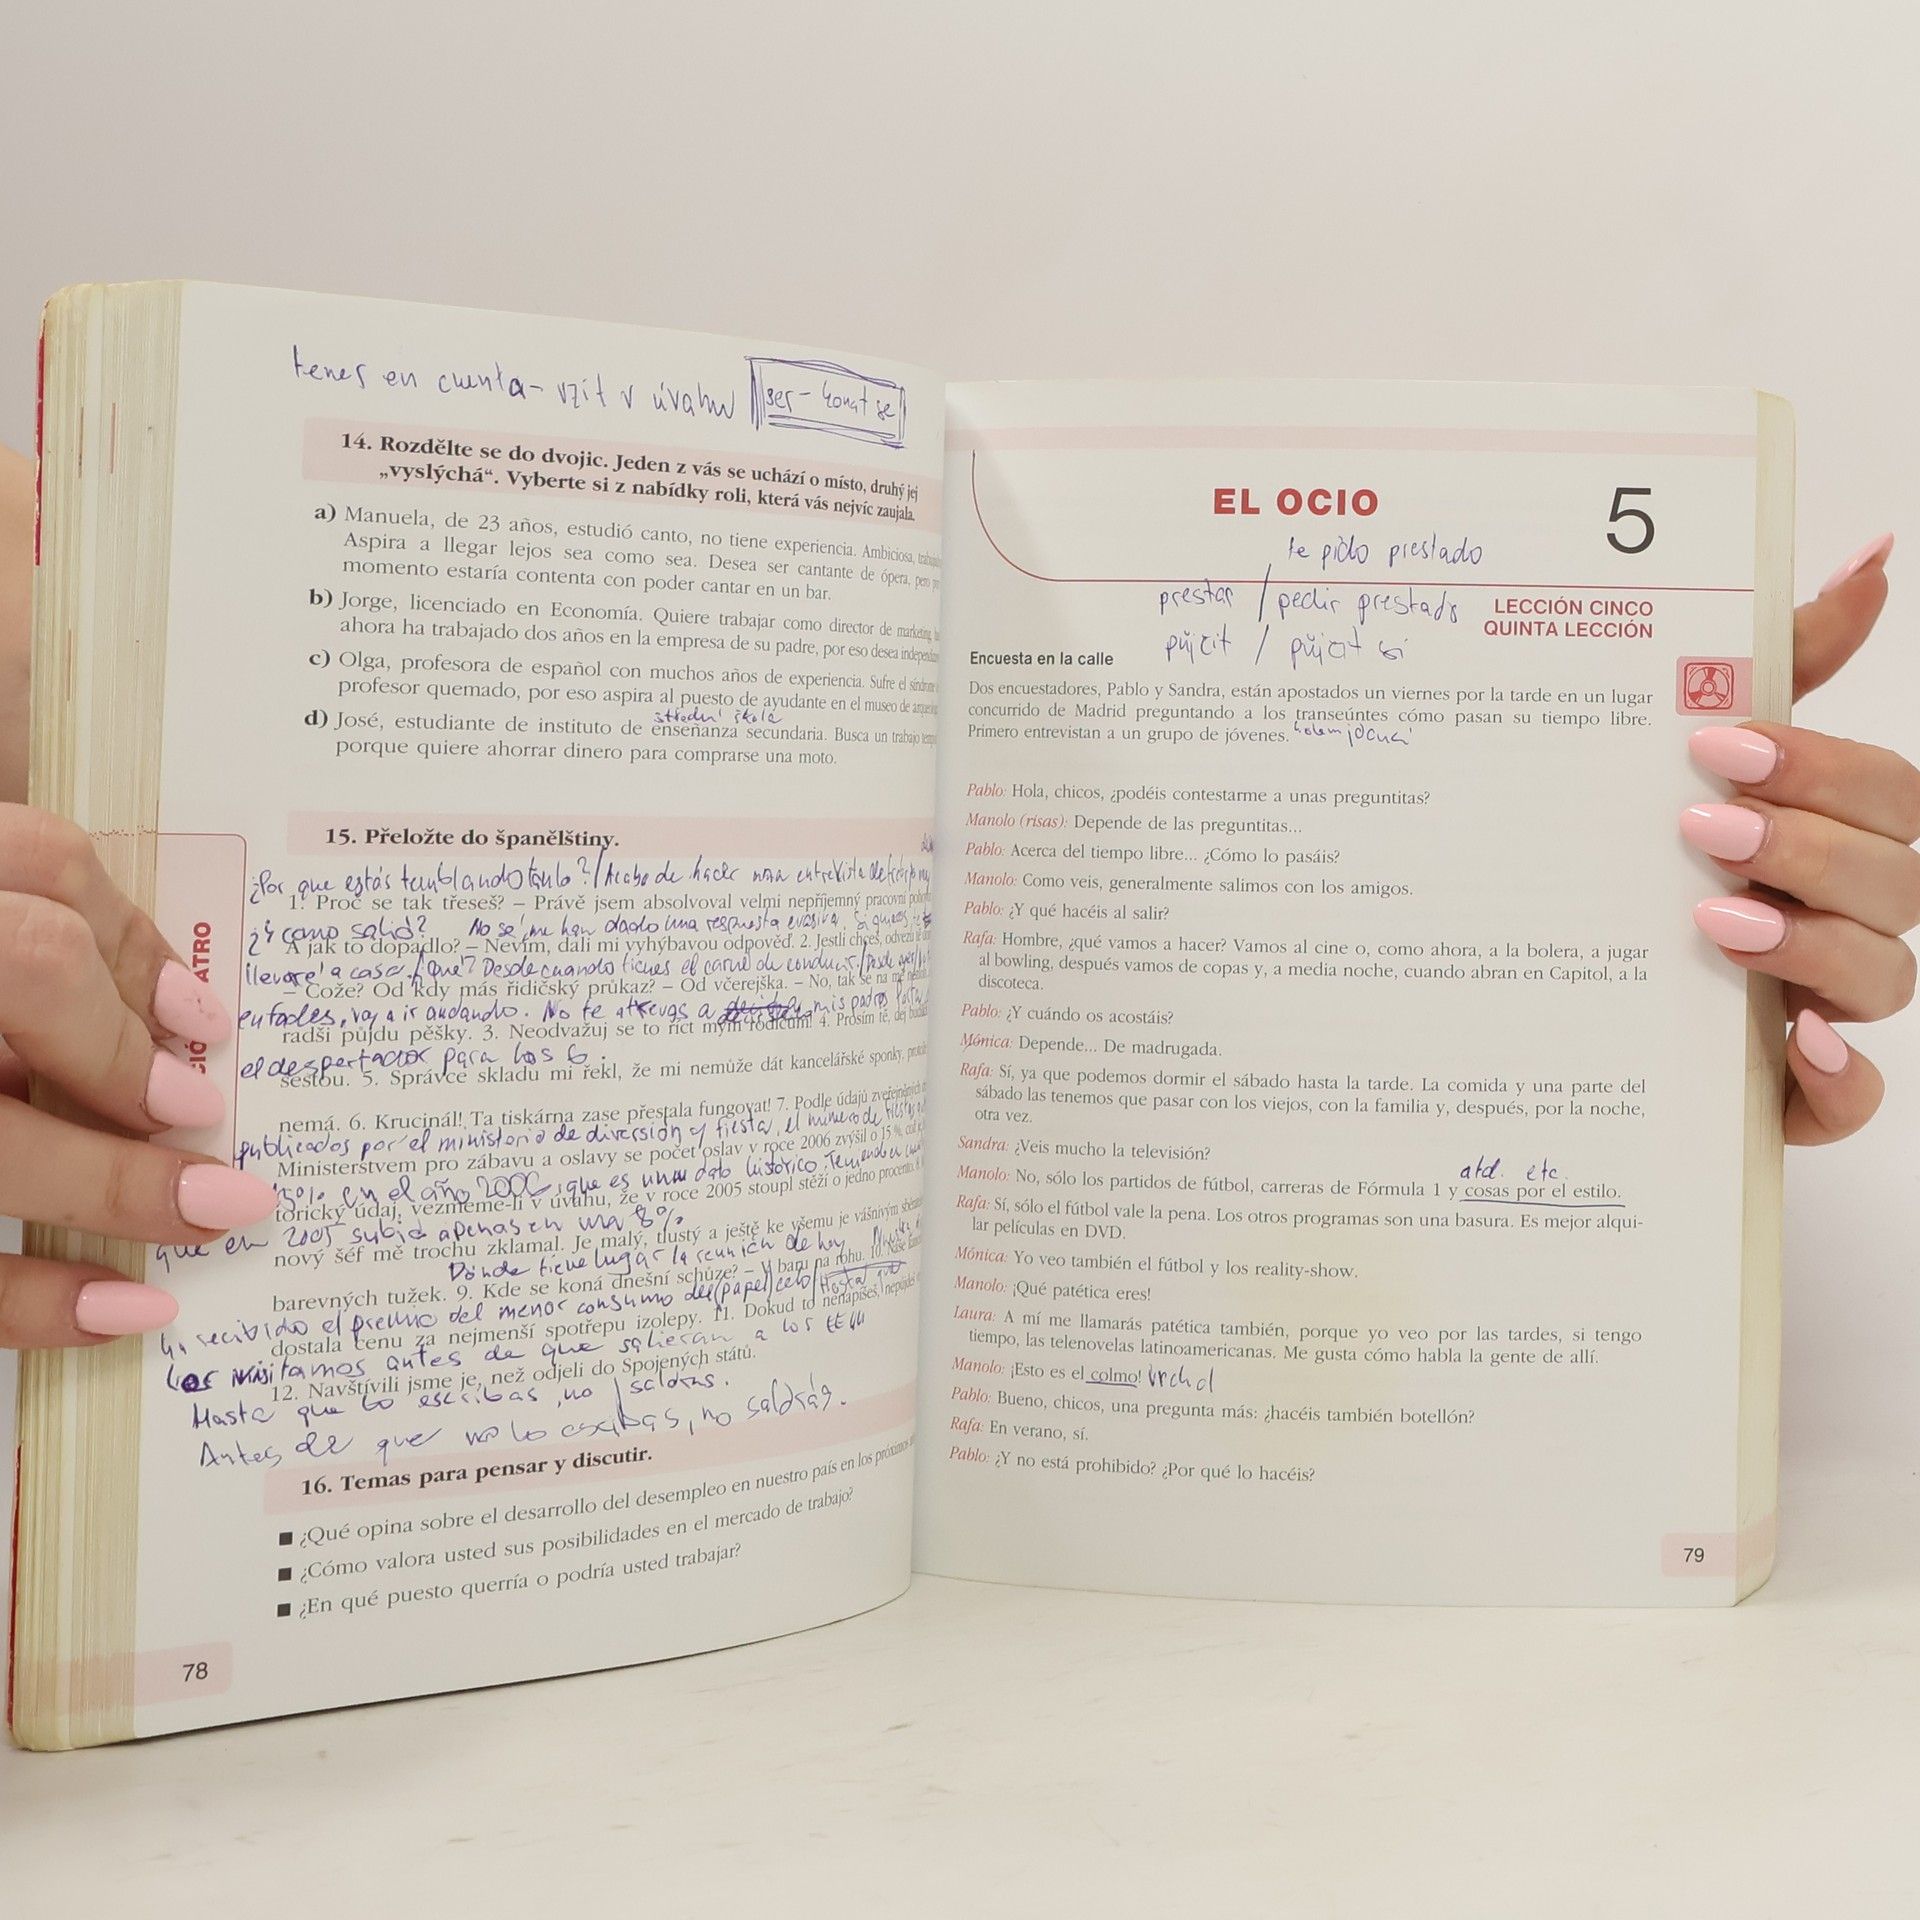 tener en cuenta - vzít v úvahu
ser - konat se
14. Rozdělte se do dvojic. Jeden z vás se uchází o místo, druhý jej
„vyslýchá“. Vyberte si z nabídky roli, která vás nejvíc zaujala.
a) Manuela, de 23 años, estudió canto, no tiene experiencia. Ambiciosa,
Aspira a llegar lejos sea como sea. Desea ser cantante de ópera, pero
momento estaría contenta con poder cantar en un bar.
b) Jorge, licenciado en Economía. Quiere trabajar como director de marketing,
ahora ha trabajado dos años en la empresa de su padre, por eso desea
c) Olga, profesora de español con muchos años de experiencia. Sufre el síndrome
profesor quemado, por eso aspira al puesto de ayudante en el museo de
střední škola
d) José, estudiante de instituto de enseñanza secundaria. Busca un trabajo
porque quiere ahorrar dinero para comprarse una moto.
15. Přeložte do španělštiny.
¿Por que estás temblando tanto? / Acabo de hacer una entrevista de trabajo
1. Proč se tak třeseš? – Právě jsem absolvoval velmi nepříjemný pracovní
¿Y como salió? No se, me han dado una respuesta evasiva. Si quieres, te
A jak to dopadlo? – Nevím, dali mi vyhýbavou odpověď. 2. Jestli chceš, odvezu tě
llevaré a casa. ¿Qué? Desde cuando tienes el carné de conducir. / Desde ayer
– Cože? Od kdy máš řidičský průkaz? – Od včerejška. – No, tak se na mě
enfades, voy a ir andando. No te atrevas a mis padres
radši půjdu pěšky. 3. Neodvažuj se to říct mým rodičům! 4. Prosím tě, dej
el despertador para las 6.
šestou. 5. Správce skladu mi řekl, že mi nemůže dát kancelářské sponky,
nemá. 6. Krucinál! Ta tiskárna zase přestala fungovat! 7. Podle údajů zveřejněných
publicados por el ministerio de diversión y fiesta, el número de fiestas
Ministerstvem pro zábavu a oslavy se počet oslav v roce 2006 zvýšil o 15 %,
15% en el año 2006, que es un dato histórico. Teniendo en
torický údaj, vezmeme-li v úvahu, že v roce 2005 stoupl stěží o jedno procento.
que en 2005 subió apenas en una %
nový šéf mě trochu zklamal. Je malý, tlustý a ještě ke všemu je vášnivým
Dónde tiene lugar la reunión de hoy
barevných tužek. 9. Kde se koná dnešní schůze? – V baru na rohu. 10. Naše
ha recibido el premio del menor consumo del papel celo / Hasta que
dostala cenu za nejmenší spotřebu izolepy. 11. Dokud to nenapíšeš,
Los visitamos antes de que salieran a los EEUU
12. Navštívili jsme je, než odjeli do Spojených států.
Hasta que lo escribas, no saldrás.
Antes de que no lo escribas, no saldrás.
16. Temas para pensar y discutir.
■ ¿Qué opina sobre el desarrollo del desempleo en nuestro país en los próximos
■ ¿Cómo valora usted sus posibilidades en el mercado de trabajo?
■ ¿En qué puesto querría o podría usted trabajar?
78
EL OCIO
5
te pido prestado
prestar / pedir prestado
půjčit / půjčit si
LECCIÓN CINCO
QUINTA LECCIÓN
Encuesta en la calle
Dos encuestadores, Pablo y Sandra, están apostados un viernes por la tarde en un lugar
concurrido de Madrid preguntando a los transeúntes cómo pasan su tiempo libre.
Primero entrevistan a un grupo de jóvenes. kolemjdoucí
Pablo: Hola, chicos, ¿podéis contestarme a unas preguntitas?
Manolo (risas): Depende de las preguntitas...
Pablo: Acerca del tiempo libre... ¿Cómo lo pasáis?
Manolo: Como veis, generalmente salimos con los amigos.
Pablo: ¿Y qué hacéis al salir?
Rafa: Hombre, ¿qué vamos a hacer? Vamos al cine o, como ahora, a la bolera, a jugar
al bowling, después vamos de copas y, a media noche, cuando abran en Capitol, a la
discoteca.
Pablo: ¿Y cuándo os acostáis?
Mónica: Depende... De madrugada.
Rafa: Sí, ya que podemos dormir el sábado hasta la tarde. La comida y una parte del
sábado las tenemos que pasar con los viejos, con la familia y, después, por la noche,
otra vez.
Sandra: ¿Veis mucho la televisión?
atd. etc.
Manolo: No, sólo los partidos de fútbol, carreras de Fórmula 1 y cosas por el estilo.
Rafa: Sí, sólo el fútbol vale la pena. Los otros programas son una basura. Es mejor alqui-
lar películas en DVD.
Mónica: Yo veo también el fútbol y los reality-show.
Manolo: ¡Qué patética eres!
Laura: A mí me llamarás patética también, porque yo veo por las tardes, si tengo
tiempo, las telenovelas latinoamericanas. Me gusta cómo habla la gente de allí.
Manolo: ¡Esto es el colmo! vrchol
Pablo: Bueno, chicos, una pregunta más: ¿hacéis también botellón?
Rafa: En verano, sí.
Pablo: ¿Y no está prohibido? ¿Por qué lo hacéis?
79